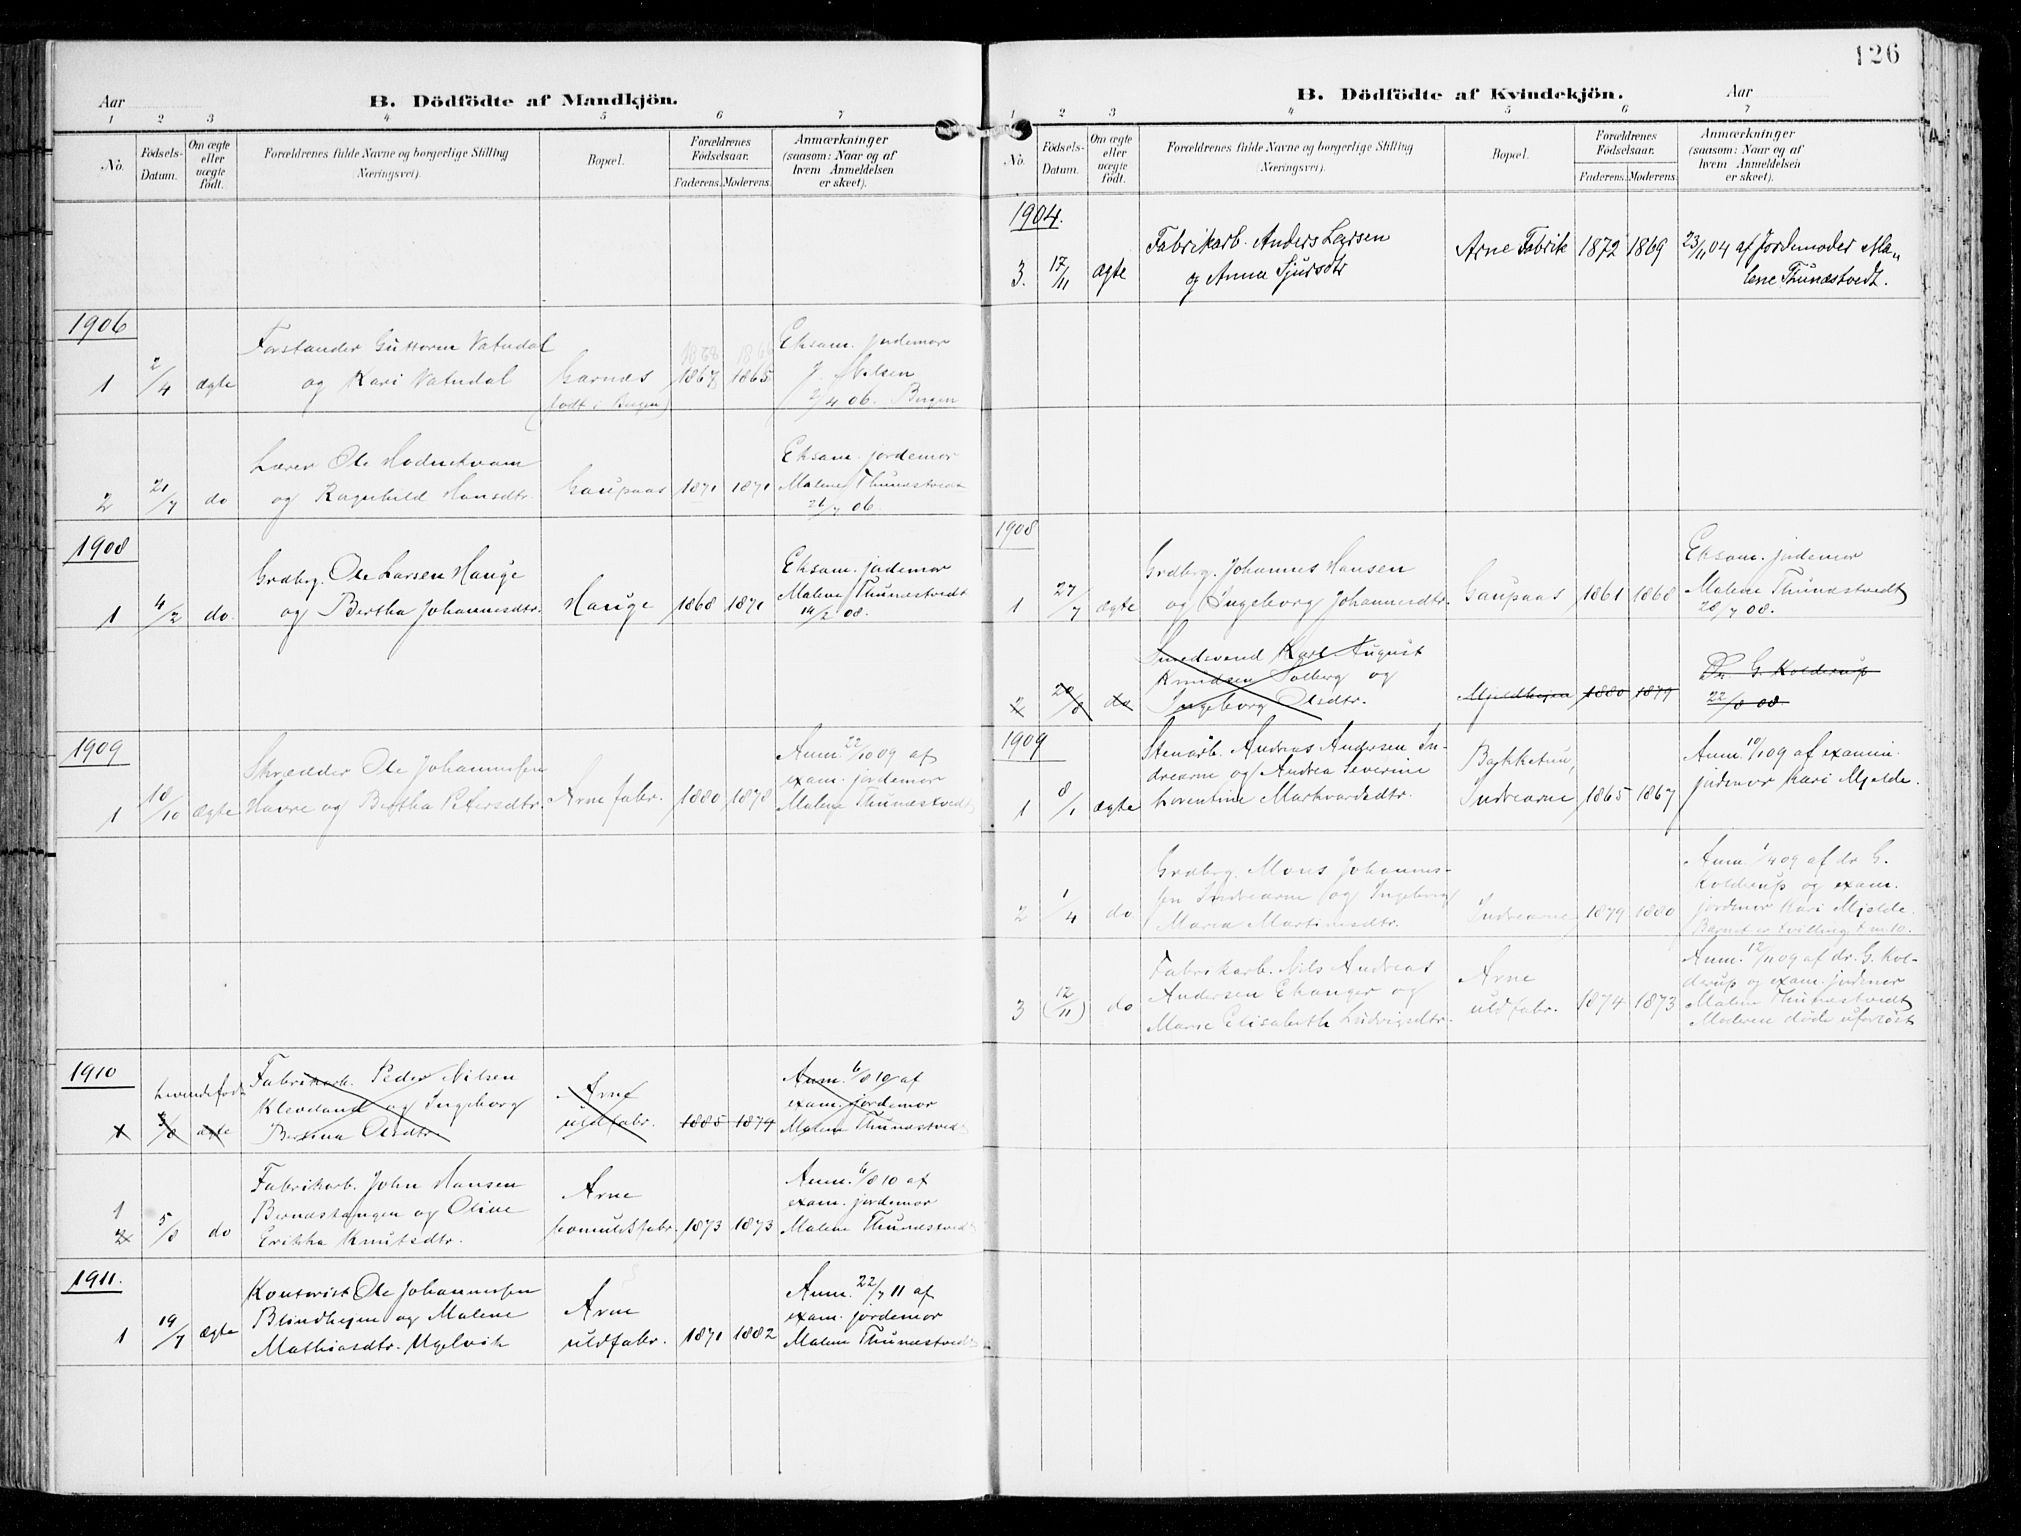 Aar
B. Dödfödte af Mandkjön.
1 2 3 4 5 6 7
No.
Födsels-
Datum.
Om ægte
eller
uægte
födt.
Forældrenes fulde Navne og borgerlige Stilling
(Næringsvei).
Bopæl.
Forældrenes
Födselsaar.
Faderens. Moderens.
Anmærkninger
(saasom: Naar og af
hvem Anmeldelsen
er skeet).
1906
1 2/4 ægte
Forstander Guttorm Vatndal
og Kari Vatndal
Garnæs
(født i Bergen)
1868 1866
1867 1865
Eksam. jordemor
J. Nelsen
2/4 06. Bergen
2 21/7 do
Lærer Ole
og Ragnhild Hansdtr.
Gaupaas
1871 1871
Eksam. jordemor
Malene Thunæstvedt
21/7 06.
1908
1 4/2 do.
Grdbrg. Ole Larsen Hauge
og Bertha Johannesdtr.
Hauge
1868 1871
Eksam. jordemor
Malene Thunæstvedt
14/2 08.
1909
1 18/10 ægte
Skrædder Ole Johannessen
Havre og Bertha Petersdtr.
Arne fabr.
1880 1878
Anm. 22/10 09 af
exam. jordemor
Malene Thunæstvedt
1910
Levendefødt
1 5/8 ægte
Fabrikarb. Peder Nilsen
Kleveland og Ingeborg
Besina Olsdtr.
Arne
uldfabr.
1885 1879
Anm. 6/8 10 af
exam. jordemor
Malene Thunæstvedt
1
2 5/8 do
Fabrikarb. John Hansen
Bernæstangen og Oline
Erikka Knutsdtr.
Arne
bomuldsfabr.
1873 1873
Anm. 6/8 10 af
exam. jordemor
Malene Thunæstvedt
1911.
1 19/7 ægte
Kontorist Ole Johannessen
Blindhejm og Malene
Mathiasdtr. Ugelvik
Arne
uldfabr.
1871 1882
Anm. 22/7 11 af
exam. jordemor
Malene Thunæstvedt
126
B. Dödfödte af Kvindekjön.
Aar
1 2 3 4 5 6 7
No.
Födsels-
Datum.
Om ægte
eller
uægte
födt.
Forældrenes fulde Navne og borgerlige Stilling
(Næringsvei).
Bopæl.
Forældrenes
Födselsaar.
Faderens. Moderens.
Anmærkninger
(saasom: Naar og af
hvem Anmeldelsen
er skeet).
1904.
3. 17/11 ægte
Fabrikarb. Anders Larsen
og Anna Sjursdtr
Arne Fabrik
1872 1869
23/11 04 af Jordemoder Ma-
lene Thunæstvedt.
1908
1 27/7 ægte
Grdbrg. Johannes Hansen
og Ingeborg Johannesdtr.
Gaupaas
1861 1868
Eksam. jordemor
Malene Thunæstvedt
28/7 08.
2 20/8 do
Smedsvend Karl August
Knudsen Solberg og
Ingeborg Olsdtr.
Mjeldhejen
1880 1879
Dr G. Koldrup
22/8 08
1909
1 8/1 ægte
Stenarb. Andreas Andersen In-
drearne og Andrea Severine
Lorentine Markvardsdtr.
Bakketun
Indrearne
1865 1867
Anm. 10/1 09 af examin.
jordemor Kari Mjelde.
2 1/4 do
Grdbrg. Mons Johannes-
sen Indrearne og Ingeborg
Maria Martinsdtr.
Indrearne
1879 1880
Anm. 1/4 09 af dr. G.
Koldrup og exam.
jordemor Kari Mjelde.
Barnet er tvilling t. no 10.
3 (12/11) do
Fabrikarb. Nils Andreas
Andersen Ekanger og
Marie Elisabeth Ludvigsdtr.
Arne
uldfabr.
1874 1873
Anm. 12/11 09 af dr. G. Kol-
derup og exam. jordemor
Malene Thunæstvedt
Moderen døde uforløst